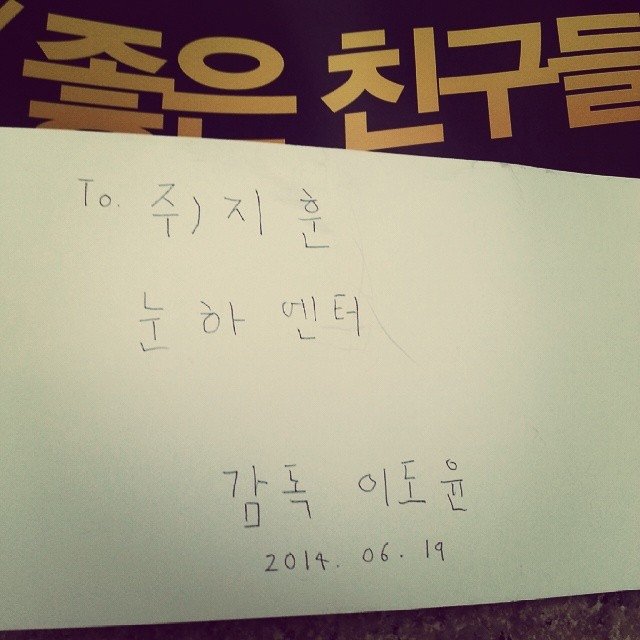 좋은 친구들
To. 주) 지훈
눈하 엔터
감독 이도윤
2014. 06. 19